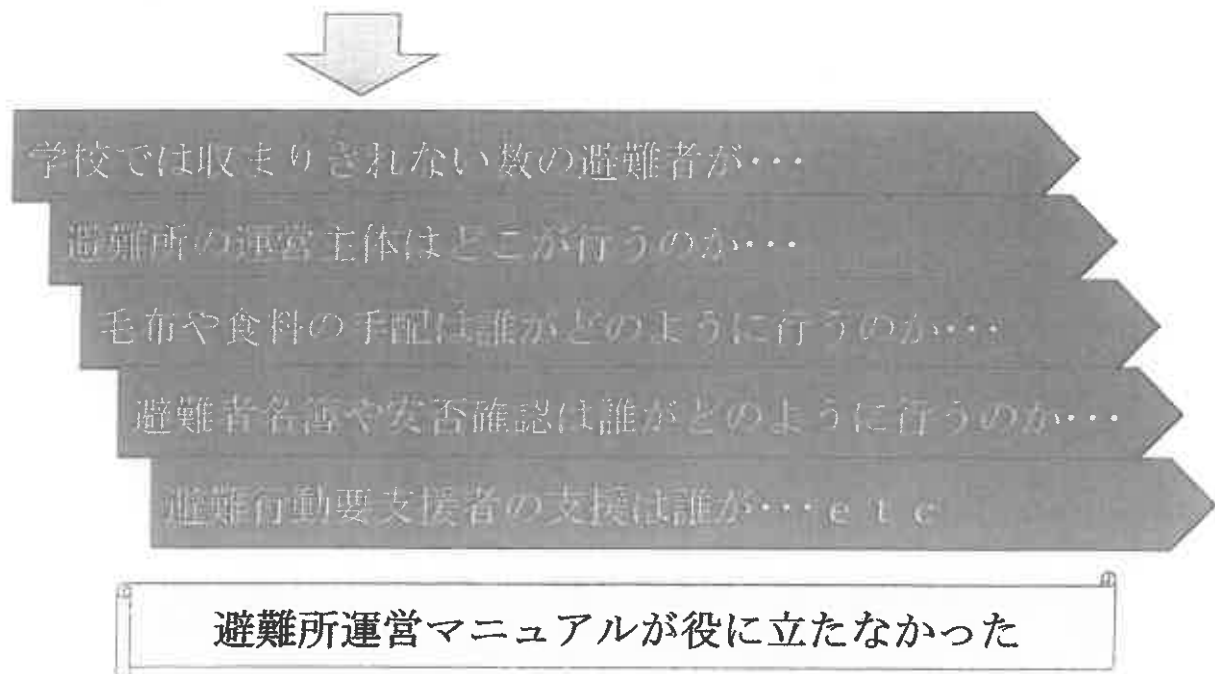 学校では収まりされない数の避難者が・・・
避難所の運営主体はどこが行うのか・・・
毛布や食料の手配は誰がどのように行うのか・・・
避難者名簿や安否確認は誰がどのように行うのか・・・
避難行動要支援者の支援は誰が・・・ｅｔｃ
避難所運営マニュアルが役に立たなかった